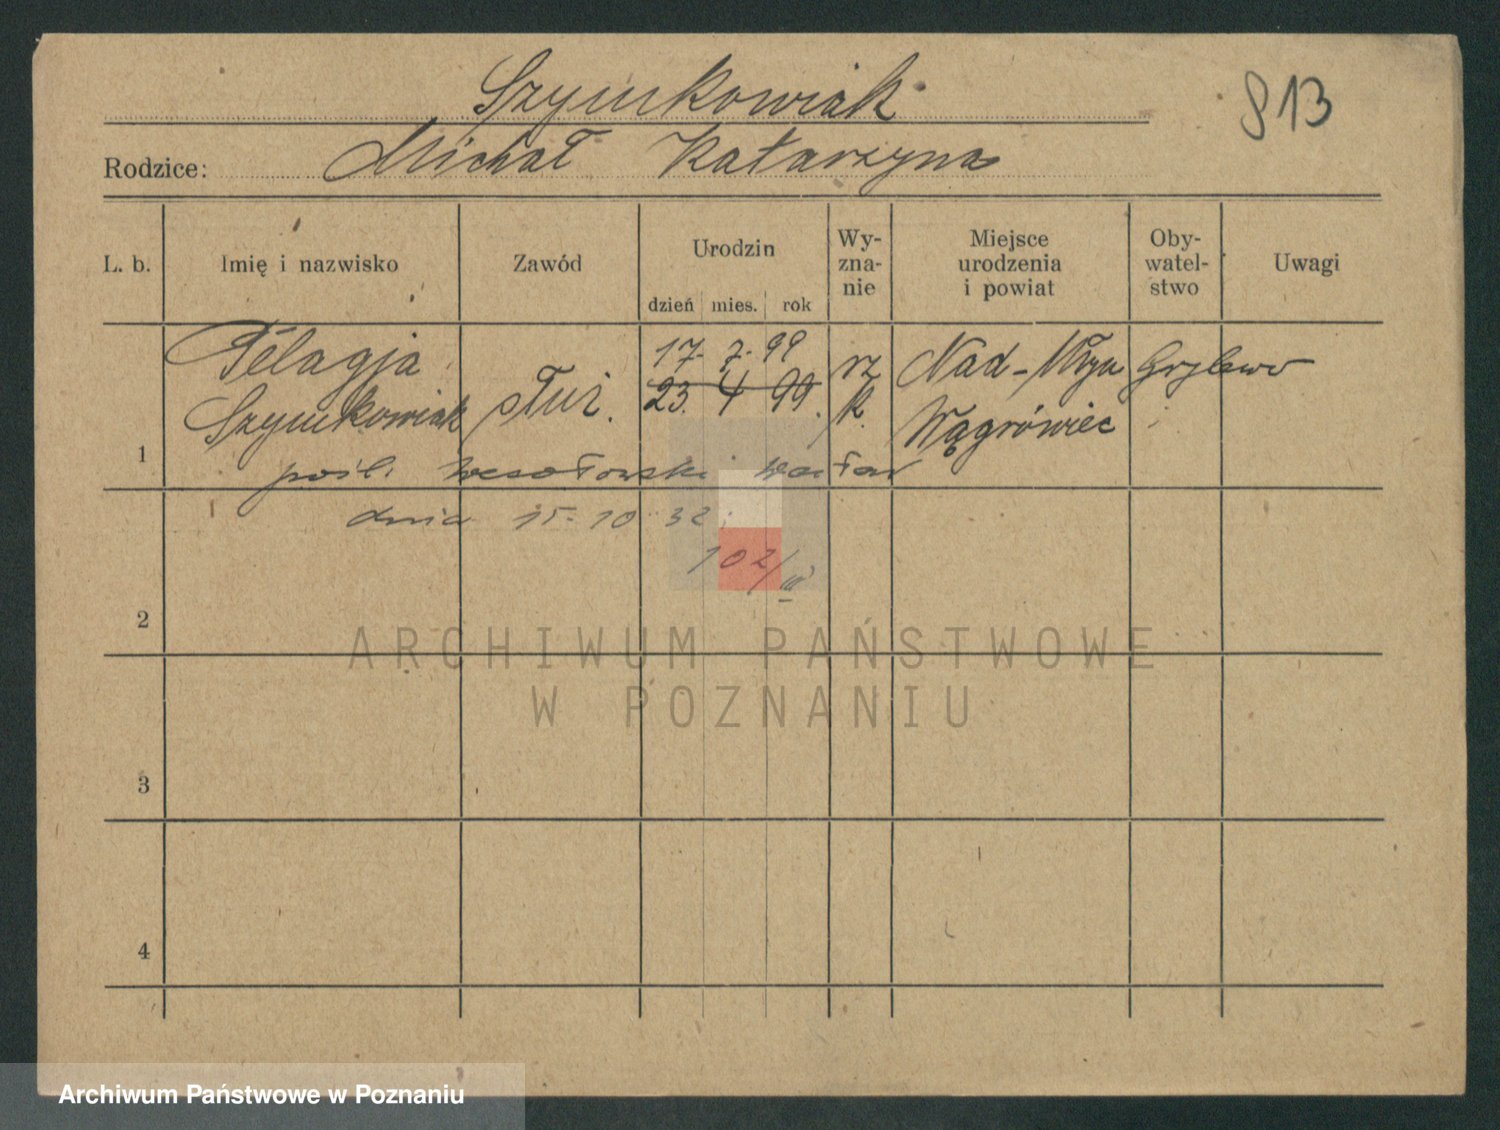 Szymkowiak
813
Rodzice: Michał Katarzyna
L. b. Imię i nazwisko Zawód Urodzin dzień mies. rok Wy-zna-nie Miejsce urodzenia i powiat Oby-watel-stwo Uwagi
17. 7. 99
Pelagja
Szymkowiak służ. 23. 4 99. rz k. Nad-Młyn Grylewo
Wągrówiec
1
pośl. Wesołowski Wacław
dnia 15-10 32
102/III
2
ARCHIWUM PAŃSTWOWE
W POZNANIU
3
4
Archiwum Państwowe w Poznaniu